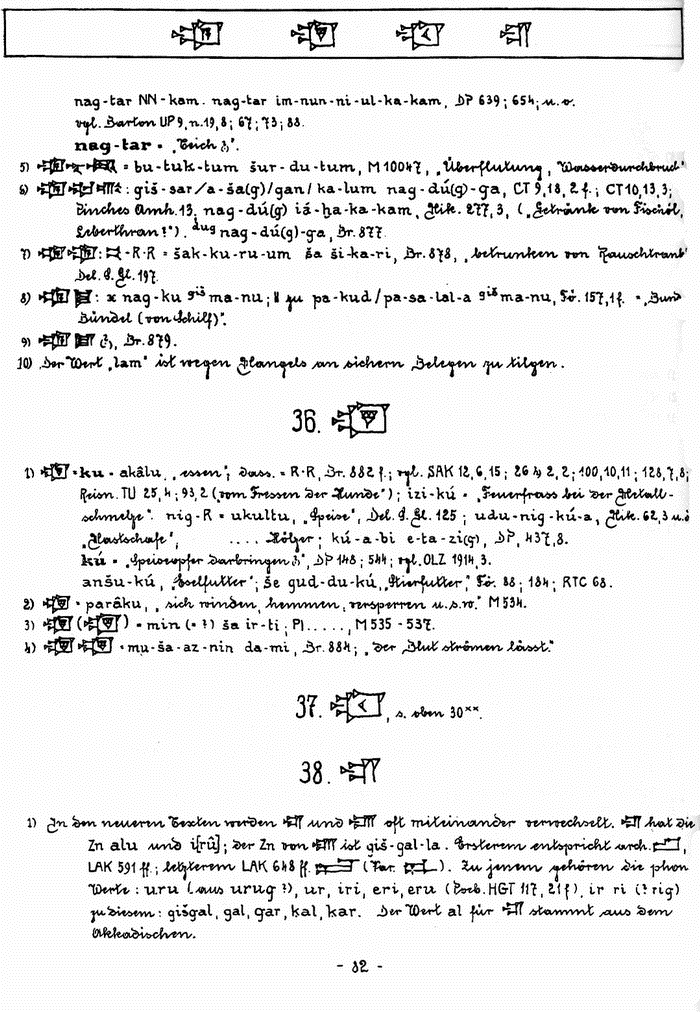 nag-tar NN-kam. nag-tar im-nun-ni-ul-ka-kam, DP 639; 654; u. o.
vgl. Barton UP 9, n. 19, 8; 67; 73; 88.
nag-tar = „Teich".
5) = bu-tuk-tum šur-du-tum, M 10047, „Überflutung, Wasserdurchbruch"
6) : giš-sar/a-ša(g)/gan/ka-lum nag-dú(g)-ga, CT 9, 18, 2 f.; CT 10, 13, 3;
Pinches Amh. 13, nag-dú(g) iá-ḫa-ka-kam, Nik. 277, 3, („Getränk von Fischöl,
Leberthran?"). dug nag-dú(g)-ga, Br. 877.
7) : -R-R = šak-ku-ru-um ša ši-ka-ri, Br. 878, „betrunken von Rauschtrank"
Del. S. Gl. 197.
8) : x nag-ku giš ma-nu; II zu pa-kud/pa-sa-lal-a giš ma-nu, Fö. 157, 1 f. = „Bund
Bündel (von Schilf)".
9) , Br. 879.
10) Der Wert „lam" ist wegen Mangels an sichern Belegen zu tilgen.
36.
1) = ku = akâlu, „essen"; dass. = R-R, Br. 882 f.; vgl. SAK 12, 6, 15; 26 h) 2, 2; 100, 10, 11; 128, 7, 8;
Reisn. TU 25, 4; 93, 2 (vom Fressen der Hunde"); izi-kú = „Feuerfrass bei der Metall-
schmelze". nig-R = ukultu, „Speise", Del. S. Gl. 125; udu-nig-kú-a, Nik. 62, 3 u. ö
„Mastschafe", .... Hölzer; kú-a-bi e-ta-zi(g), DP, 437, 8.
kú = „Speiseopfer darbringen", DP 148; 544; vgl. OLZ 1914, 3.
anšu-kú, „Eselfutter"; še gud-du-kú, „Stierfutter," Fö. 88; 184; RTC 68.
2) = parâku, „sich winden, hemmen, versperren u.s.w." M 534.
3) ( ) = min (= ?) ša ir-ti; Pl....., M 535 - 537.
4) = mu-ša-az-nin da-mi, Br. 884; „der Blut strömen lässt."
37. , s. oben 30xx.
38.
1) In den neueren Texten werden und oft miteinander verwechselt. hat die
Zn alu und i[rû]; der Zn von ist giš-gal-la. Ersterem entspricht arch. ,
LAK 591 ff.; letzterem LAK 648 ff. (Var. ). Zu jenem gehören die phon
Werte: uru (aus urug?), ur, iri, eri, eru (Poeb. HGT 117, 21 f), ir ri (? rig)
zu diesem: gišgal, gal, gar, kal, kar. Der Wert al für stammt aus dem
Akkadischen.
- 32 -